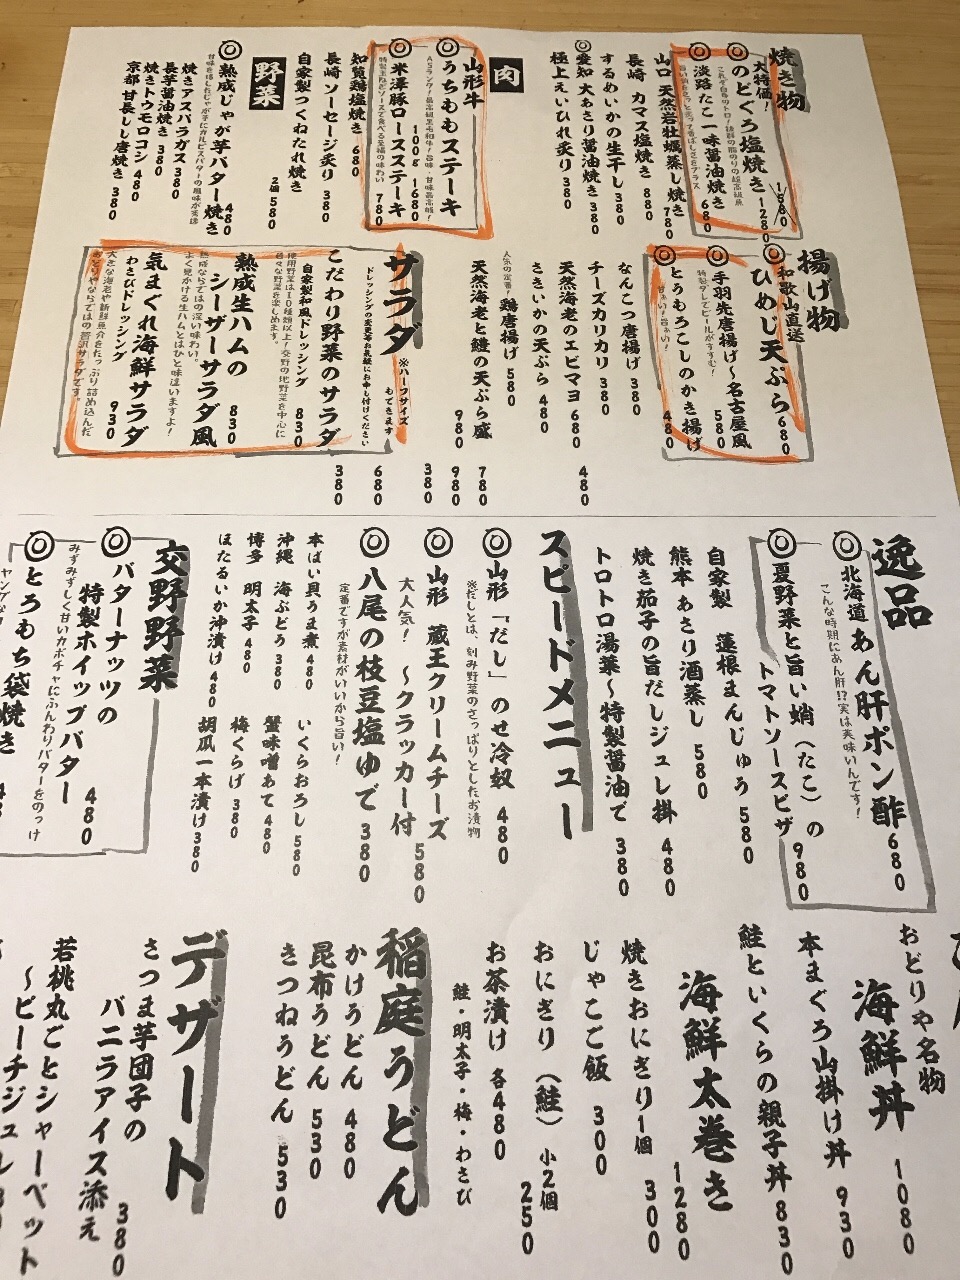 焼き物
大特価！
のどぐろ塩焼き 1580 1280
これぞ白身のトロ！抜群の脂のりの超高級魚
淡路たこ一味醤油焼き 680
山口 天然岩牡蠣蒸し焼き 780
長崎 カマス塩焼き 880
するめいかの生干し 380
愛知 大あさり醤油焼き 380
極上えいひれ炙り 380
肉
山形牛
うちももステーキ
A5ランク！最高級黒毛和牛！旨味・甘味最高潮！
100g 1680
米澤豚ロースステーキ 780
特製玉ねぎソースで食べる至福の味わい
知覧鶏塩焼き 680
長崎 ソーセージ炙り 380
自家製つくねたれ焼き
2個 580
野菜
熟成じゃが芋バター焼き 480
焼きアスパラガス 380
長芋醤油焼き 380
焼きトウモロコシ 480
京都 甘長しし唐焼き 380
揚げ物
和歌山直送
ひめじ天ぷら 680
手羽先唐揚げ～名古屋風 580
特製ダレでビールがすすむ！
とうもろこしのかき揚げ 480
甘ぁい！旨ぁい！
なんこつ唐揚げ 380
チーズカリカリ 380
天然海老のエビマヨ 680 480
さきいかの天ぷら 480
人気の定番！鶏唐揚げ 580
天然海老と鱚の天ぷら盛 780
980 980
サラダ
※ハーフサイズ
もできます 380
ドレッシングの変更等お気軽にお申し付けください
こだわり野菜のサラダ
自家製和風ドレッシング 830 380
使用野菜は10種類以上！交野の地野菜を中心に
色々な野菜を楽しめます。
熟成生ハムの 830
シーザーサラダ風
熟成ならではの深い味わい。
よく見かける生ハムとはひと味違いますよ！
気まぐれ海鮮サラダ
わさびドレッシング 930
大きな海老や新鮮魚介をたっぷり詰め込んだ
おどりやならではの贅沢サラダです。
680
逸品
北海道 あん肝ポン酢 680
こんな時期にあん肝！？実は美味いんです！
夏野菜と旨い蛸（たこ）の
トマトソースピザ 980
自家製 蓮根まんじゅう 580
熊本 あさり酒蒸し 580
焼き茄子の旨だしジュレ掛 480
トロトロ湯葉～特製醤油で 380
スピードメニュー
山形「だし」のせ冷奴 480
※だしとは、刻み野菜のさっぱりとしたお漬物
山形 蔵王クリームチーズ
大人気！ ～クラッカー付 580
八尾の枝豆塩ゆで 380
定番ですが素材がいいから旨い！
本ばい貝うま煮 480
沖縄 海ぶどう 380
博多 明太子 480
ほたるいか沖漬け 480
いくらおろし 580
蟹味噌あて 480
梅くらげ 380
胡瓜一本漬け 380
交野野菜
バターナッツの
特製ホイップバター 480
みずみずしく甘いカボチャにふんわりバターをのっけ
とろもち袋焼き
おどりや名物
海鮮丼 1080
本まぐろ山掛け丼 930
鮭といくらの親子丼 830
海鮮太巻き 1280
焼きおにぎり1個 300
じゃこご飯 300
おにぎり（鮭）小2個 250
お茶漬け 各480
鮭・明太子・梅・わさび
稲庭うどん
かけうどん 480
昆布うどん 530
きつねうどん 530
デザート
さつま芋団子の
バニラアイス添え 380
若桃丸ごとシャーベット